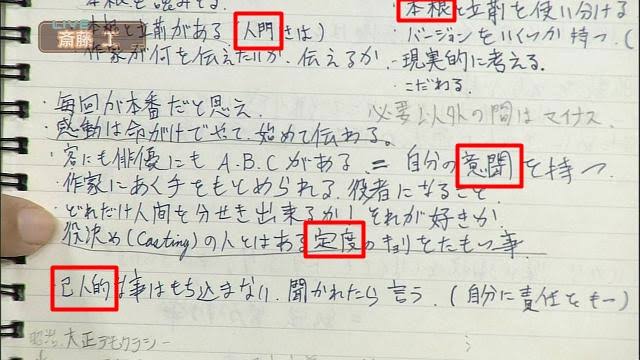 LIVE
斎藤 工
本根と立前を使い分ける
本根と立前がある(人門きは)
・バージョンをいくつか持つ.(
作家が何を伝えたいか. 伝えるか
・現実的に考える.
・こだわる.
・毎回が本番だと思え.
必要以外の間はマイナス.
・感動は命がけでやって、始めて伝わる。
・客にも俳優にも A.B.C がある = 自分の意聞を持つ
・作家にあく手をもとめられる役者になること.
・どれだけ人間を分せき出来るか! それが好きか.
役決め(Casting)の人とはある定度のキョリをたもつ事.
・己人的な事はもち込まない. 聞かれたら言う. (自分に責任をもー)
大正デモクラシー